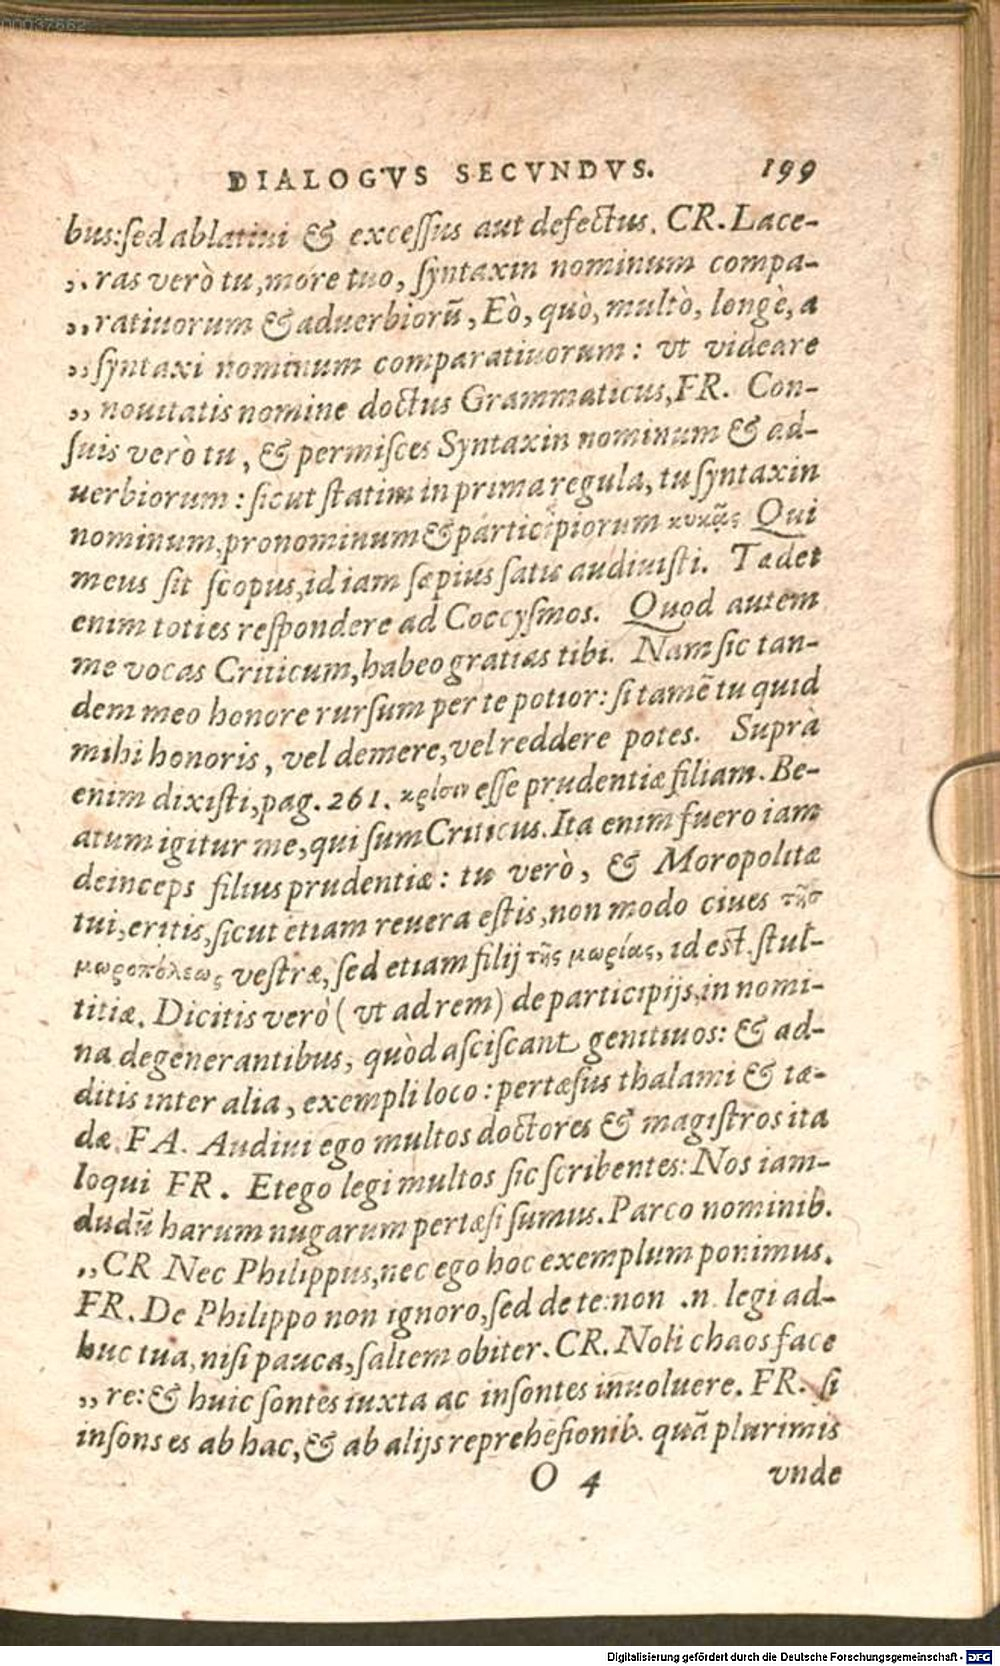 00037662
DIALOGVS SECVNDVS. 199
bus: sed ablatiui & excessus aut defectus. CR. Lace-
,, ras verò tu, more tuo, syntaxin nominum compa-
,, ratiuorum & aduerbiorũ, Eò, quò, multò, longè, a
,, syntaxi nominum comparatiuorum: vt videare
,, nouitatis nomine doctus Grammaticus, FR. Con-
suis verò tu, & permisces Syntaxin nominum & ad-
uerbiorum: sicut statim in prima regula, tu syntaxin
nominum, pronominum & participiorum κυκᾷς Qui
meus sit scopus, id iam sæpius satis audiuisti. Tædet
enim toties respondere ad Coccysmos. Quod autem
me vocas Criticum, habeo gratias tibi. Nam sic tan-
dem meo honore rursum per te potior: si tamẽ tu quid
mihi honoris, vel demere, vel reddere potes. Suprà
enim dixisti, pag. 261. κρίσιν esse prudentiæ filiam. Be-
atum igitur me, qui sum Criticus. Ita enim fuero iam
deinceps filius prudentiæ: tu verò, & Moropolitæ
tui, eritis, sicut etiam reuera estis, non modo ciues τῆσ
μωροπόλεως vestræ, sed etiam filij τῆς μωρίας, id est. stul-
titiæ. Dicitis verò ( vt ad rem) de participijs, in nomi-
na degenerantibus, quòd asciscant genitiuos: & ad-
ditis inter alia, exempli loco: pertæsus thalami & tæ-
dæ. FA. Audiui ego multos doctores & magistros ita
loqui FR. Et ego legi multos sic scribentes: Nos iam-
dudũ harum nugarum pertæsi sumus. Parco nominib.
,, CR Nec Philippus, nec ego hoc exemplum ponimus.
FR. De Philippo non ignoro, sed de te: non .n. legi ad-
huc tua, nisi pauca, saltem obiter. CR. Noli chaos face
,, re: & huic sontes iuxta ac insontes inuoluere. FR. si
insons es ab hac, & ab alijs reprehẽsionib. quã plurimis
O 4 vnde
Digitalisierung gefördert durch die Deutsche Forschungsgemeinschaft - DFG